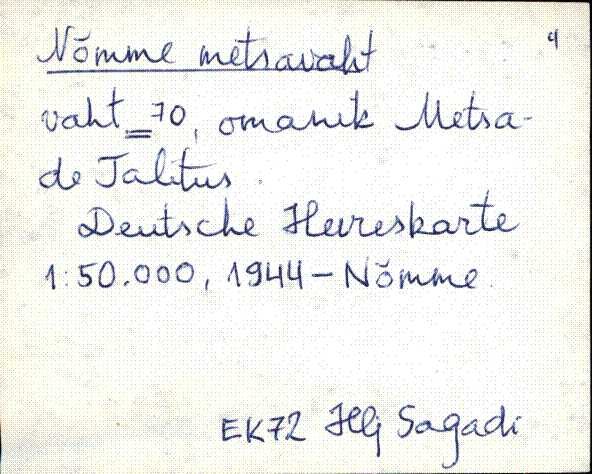 4
Nõmme metsavaht
vaht = 70, omanik Metsa-
de Talitus.
Deutsche Heereskarte
1:50.000, 1944 - Nõmme.
EK72 Hlj Sagadi